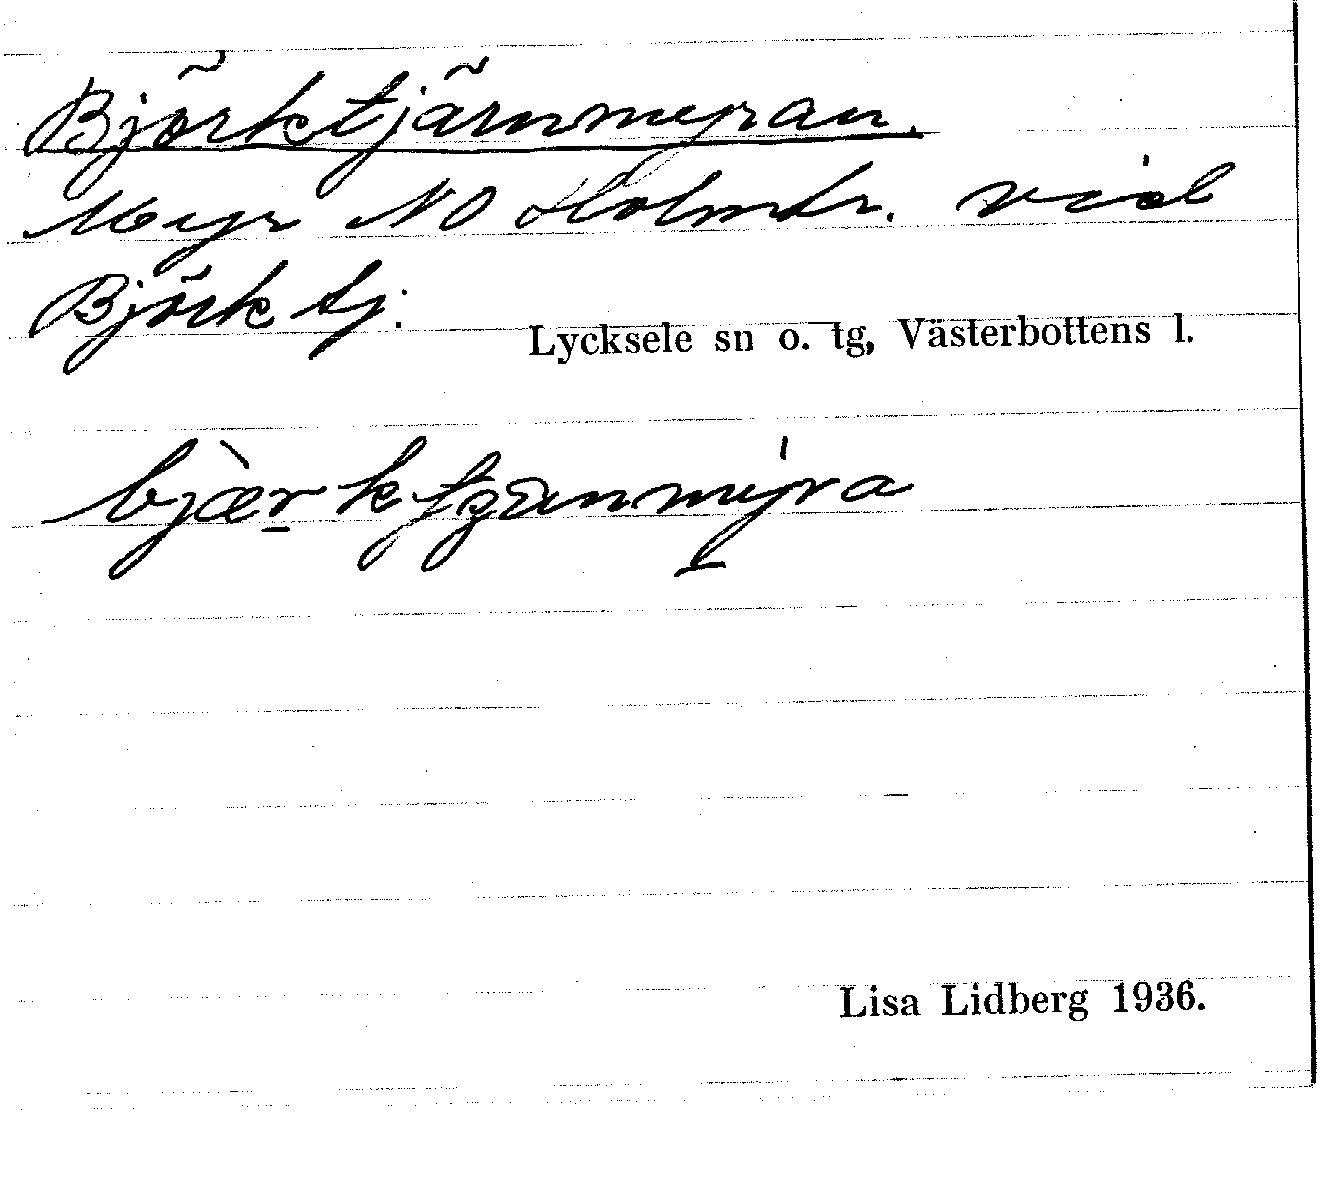 Björktjärnmyran.
Myr NO Holmtr. vid
Björktj.
Lycksele sn o. tg, Västerbottens l.
Lisa Lidberg 1936.